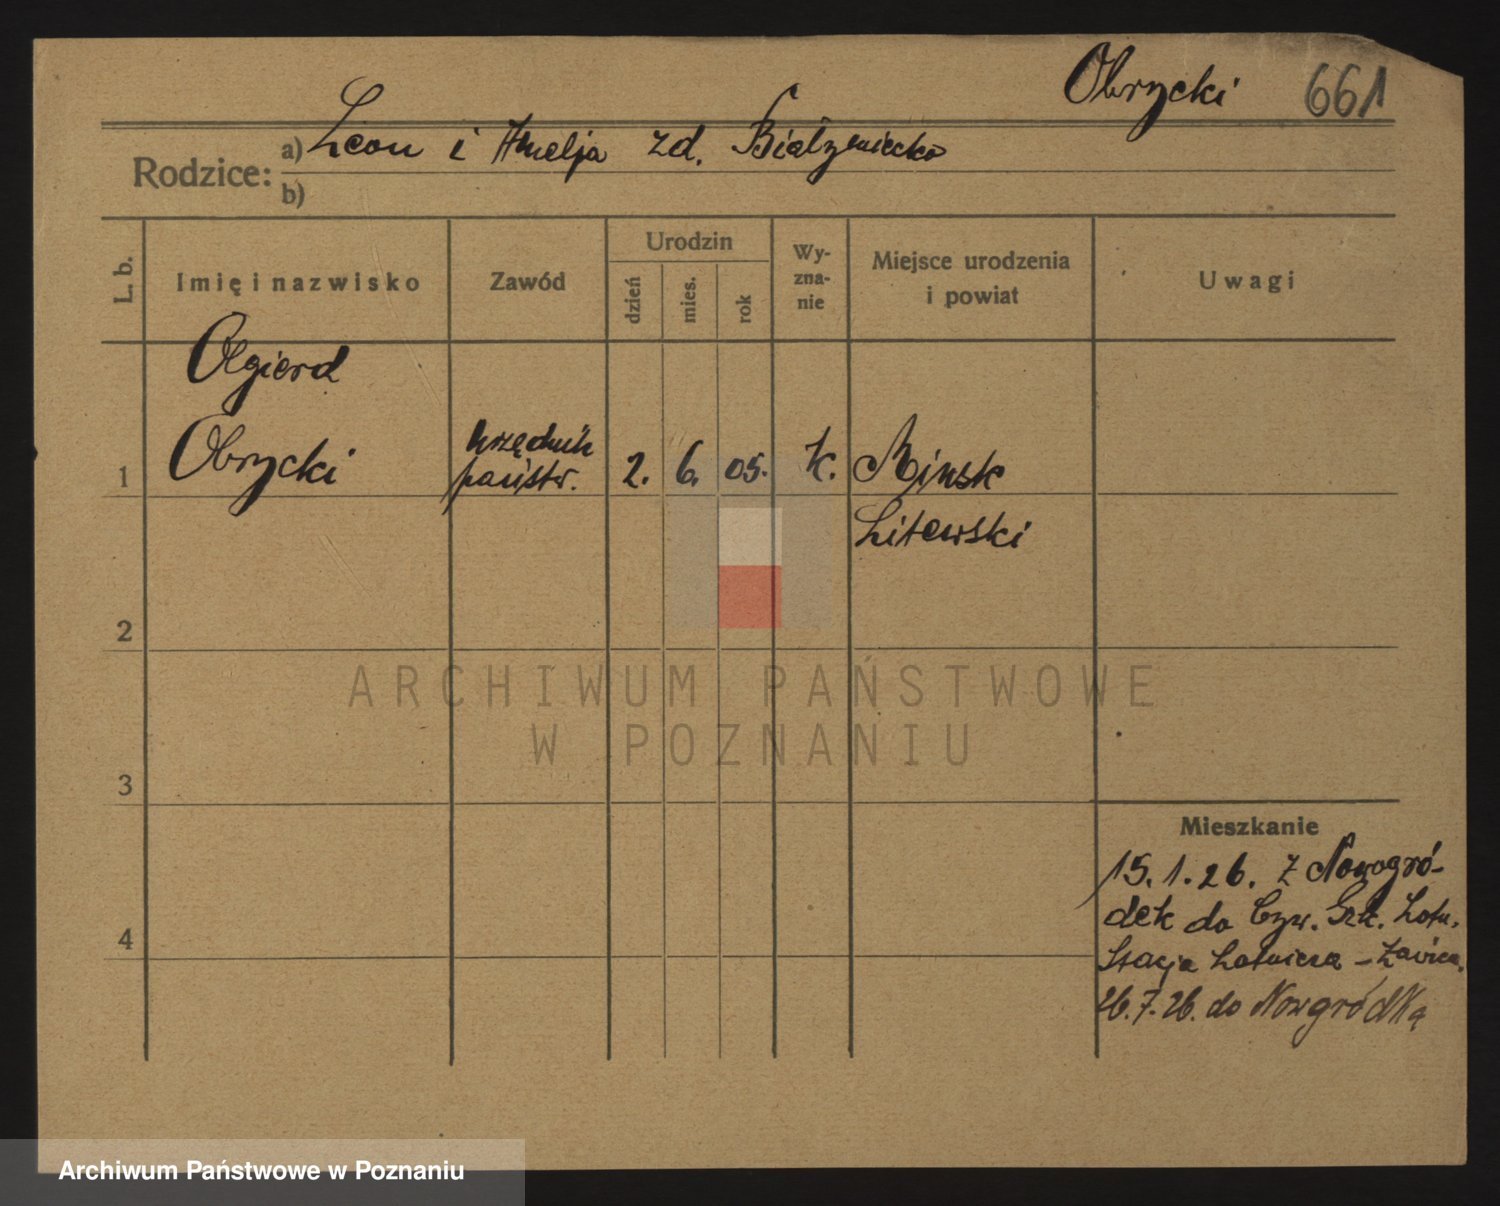 Obrycki 661
Rodzice: a) Leon i Amelja zd.
b)
L. b. Imię i nazwisko Zawód Urodzin dzień mies. rok Wy-zna-nie Miejsce urodzenia i powiat Uwagi
Olgierd
1 Obrycki urzędnik państw. 2. 6. 05. k. Mińsk
Litewski
2
3
4
Mieszkanie
15.1.26. z Nowogró-
dek do Lotn.
Stacja Lotnicza - Ławica.
26.7.26. do Nowgródka
ARCHIWUM PAŃSTWOWE
W POZNANIU
Archiwum Państwowe w Poznaniu